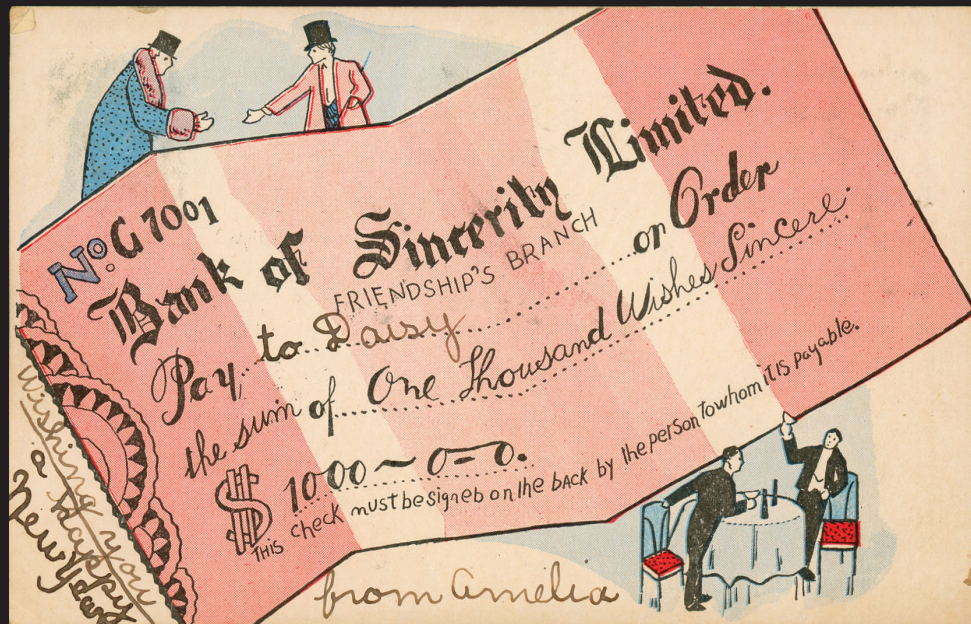 No. G 7001
Bank of Sincerity Limited.
FRIENDSHIP'S BRANCH
Pay to Daisy or Order
the sum of One Thousand Wishes Sincere
$ 1000 ~ 0-0.
THIS check must be signeb on the back by the person To whom it is payable.
Wishing you
a Happy
New Year
from Amelia